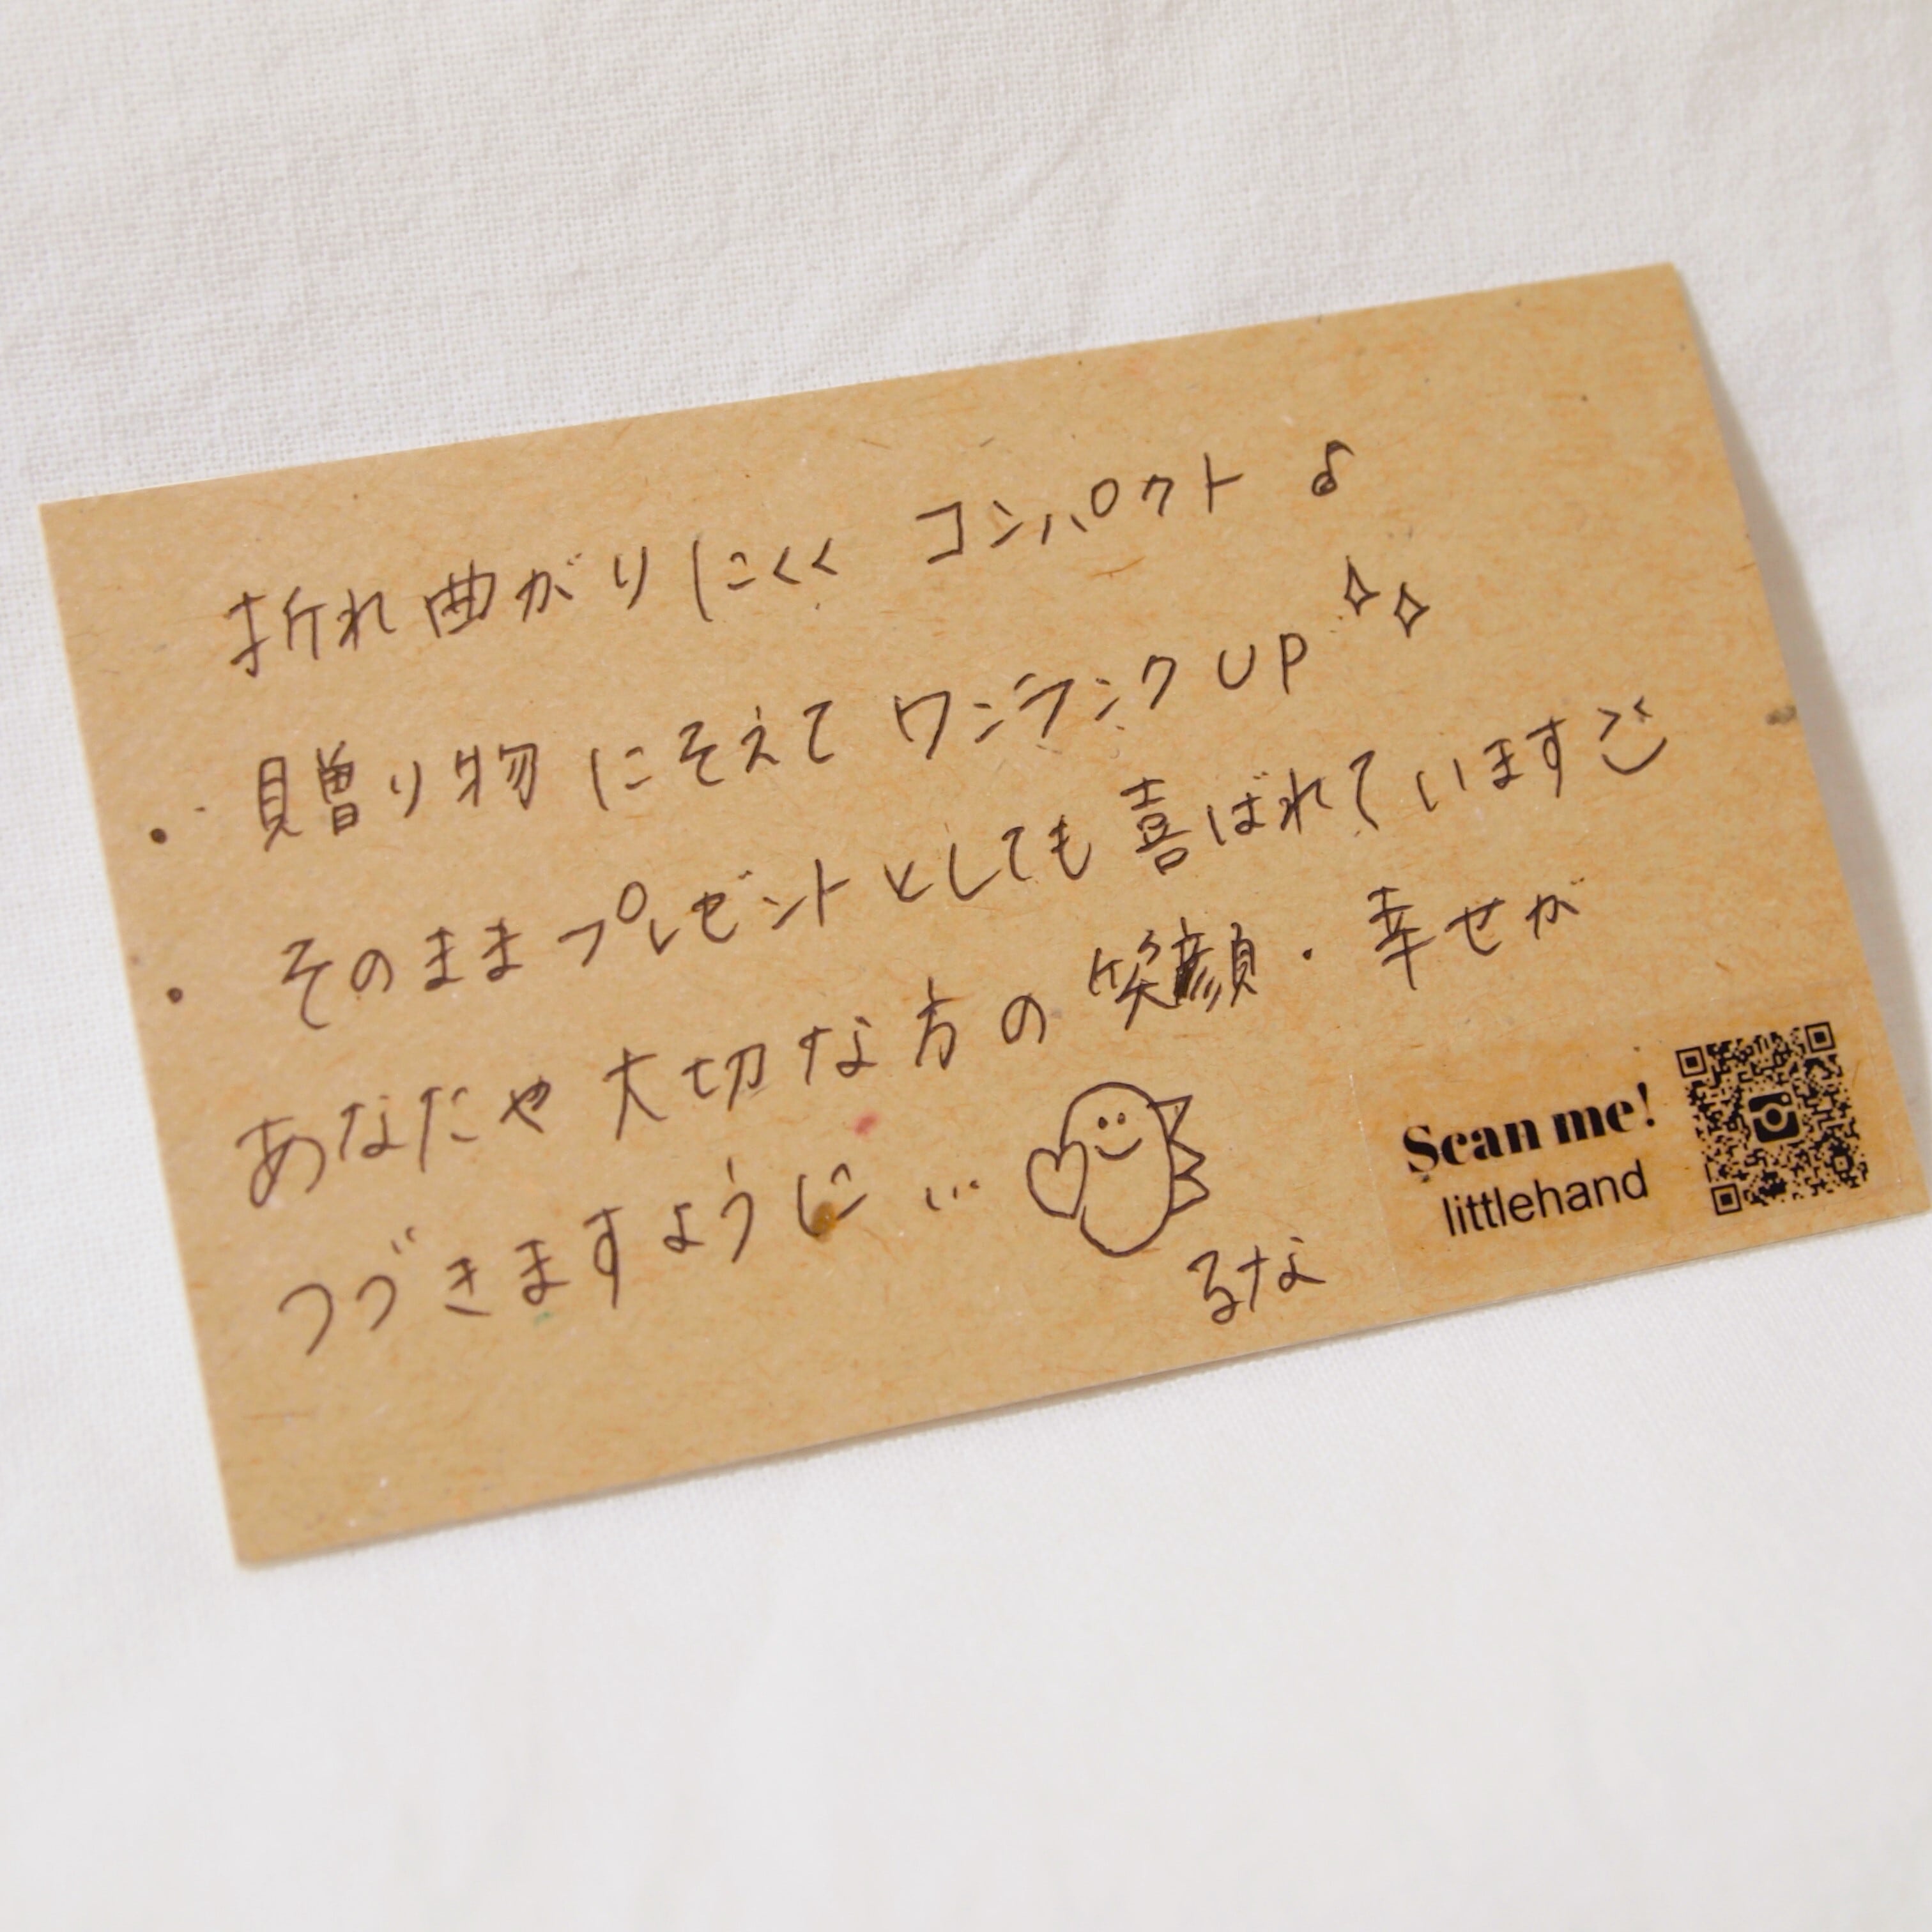 折れ曲がりにくく コンパクト ♪
・贈り物にそえて ワンランクUP
・そのままプレゼントとしても喜ばれています
あなたや大切な方の笑顔・幸せが
つづきますように…
るな
Scan me!
littlehand